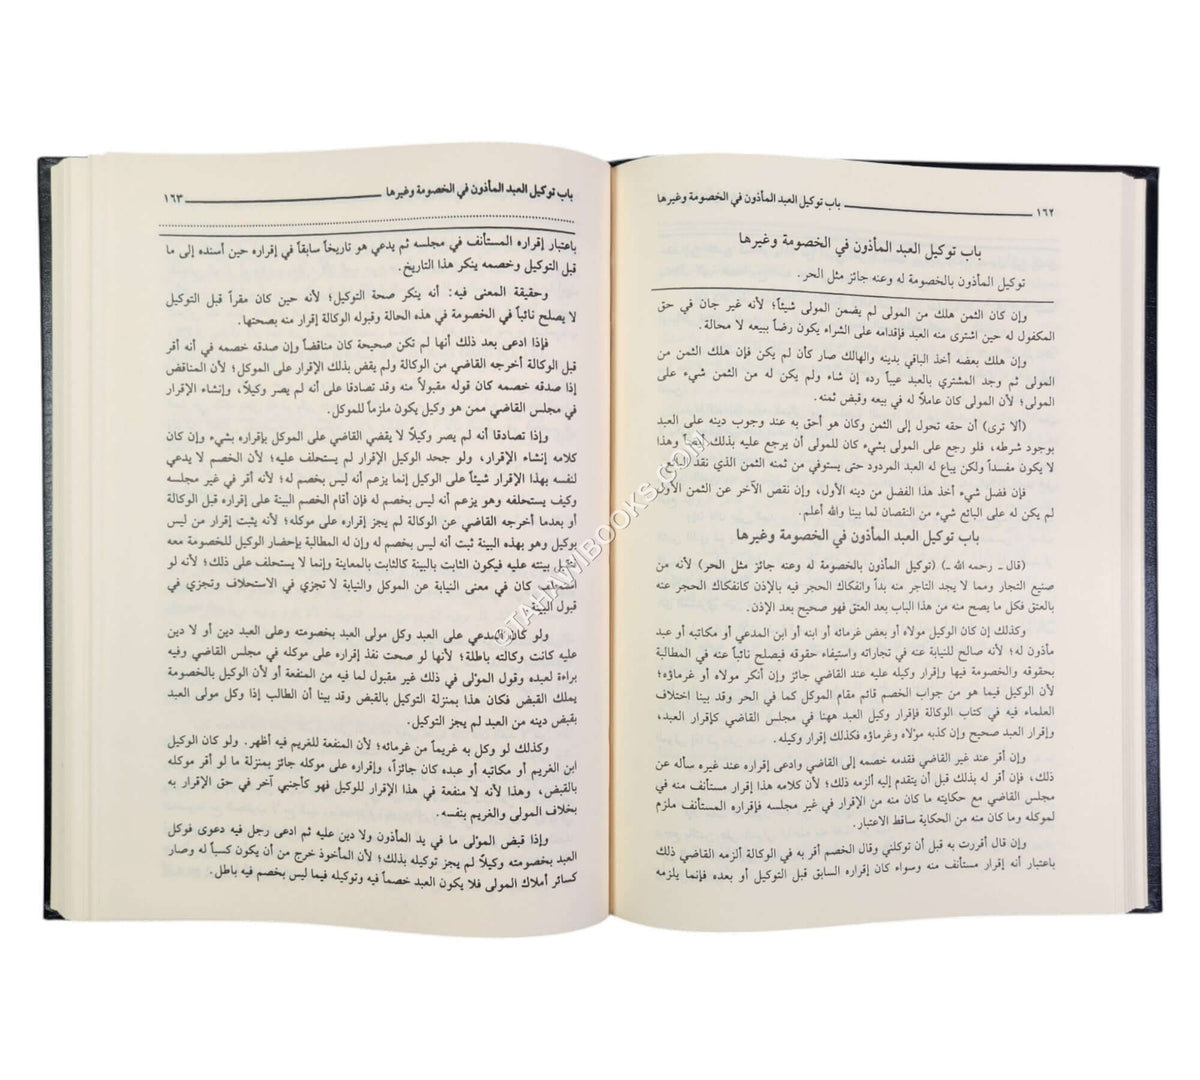 ١٦٢ باب توكيل العبد المأذون في الخصومة وغيرها
باب توكيل العبد المأذون في الخصومة وغيرها
توكيل المأذون بالخصومة له وعنه جائز مثل الحر.
وإن كان الثمن هلك من المولى لم يضمن المولى شيئاً؛ لأنه غير جان في حق
المكفول له حين اشترى منه العبد فإقدامه على الشراء يكون رضاً ببيعه لا محالة.
وإن هلك بعضه أخذ الباقي بدينه والهالك صار كأن لم يكن فإن هلك الثمن من
المولى ثم وجد المشتري بالعبد عيباً رده إن شاء ولم يكن له من الثمن شيء على
المولى؛ لأن المولى كان عاملاً له في بيعه وقبض ثمنه.
(ألا ترى) أن حقه تحول إلى الثمن وكان هو أحق به عند وجوب دينه على العبد
بوجود شرطه، فلو رجع على المولى بشيء كان للمولى أن يرجع عليه بذلك أيضاً وهذا
لا يكون مفسداً ولكن يباع له العبد المردود حتى يستوفي من ثمنه الثمن الذي نقد البائع.
فإن فضل شيء أخذ هذا الفضل من دينه الأول، وإن نقص الآخر عن الثمن الأول
لم يكن له على البائع شيء من النقصان لما بينا والله أعلم.
باب توكيل العبد المأذون في الخصومة وغيرها
(قال ـ رحمه الله ـ) (توكيل المأذون بالخصومة له وعنه جائز مثل الحر) لأنه من
صنيع التجار ومما لا يجد التاجر منه بداً وانفكاك الحجر فيه بالإذن كانفكاك الحجر عنه
بالعتق فكل ما يصح منه من هذا الباب بعد العتق فهو صحيح بعد الإذن.
وكذلك إن كان الوكيل مولاه أو بعض غرمائه أو ابنه أو ابن المدعي أو مكاتبه أو عبد
مأذون له؛ لأنه صالح للنيابة عنه في تجاراته واستيفاء حقوقه فيصلح نائباً عنه في المطالبة
بحقوقه والخصومة فيها وإقرار وكيله عليه عند القاضي جائز وإن أنكر مولاه أو غرماؤه؛
لأن الوكيل فيما هو من جواب الخصم قائم مقام الموكل كما في الحر وقد بينا اختلاف
العلماء فيه في كتاب الوكالة فإقرار وكيل العبد ههنا في مجلس القاضي كإقرار العبد،
وإقرار العبد صحيح وإن كذبه مؤلاه وغرماؤه فكذلك إقرار وكيله.
وإن أقر عند غير القاضي فقدمه خصمه إلى القاضي وادعى إقراره عند غيره سأله عن
ذلك، فإن أقر له بذلك قبل أن يتقدم إليه ألزمه ذلك؛ لأن كلامه هذا إقرار مستأنف منه في
مجلس القاضي مع حكايته ما كان منه من الإقرار في غير مجلسه فإقراره المستأنف ملزم
لموكله وما كان منه من الحكاية ساقط الاعتبار.
وإن قال أقررت به قبل أن توكلني وقال الخصم أقر به في الوكالة ألزمه القاضي ذلك
باعتبار أنه إقرار مستأنف منه وسواء كان إقراره السابق قبل التوكيل أو بعده فإنما يلزمه
باب توكيل العبد المأذون في الخصومة وغيرها ١٦٣
باعتبار إقراره المستأنف في مجلسه ثم يدعي هو تاريخاً سابقاً في إقراره حين أسنده إلى ما
قبل التوكيل وخصمه ينكر هذا التاريخ.
وحقيقة المعنى فيه: أنه ينكر صحة التوكيل؛ لأنه حين كان مقراً قبل التوكيل
لا يصلح نائباً في الخصومة في هذه الحالة وقبوله الوكالة إقرار منه بصحتها.
فإذا ادعى بعد ذلك أنها لم تكن صحيحة كان مناقضاً وإن صدقه خصمه في أنه أقر
قبل الوكالة أخرجه القاضي من الوكالة ولم يقض بذلك الإقرار على الموكل؛ لأن المناقض
إذا صدقه خصمه كان قوله مقبولاً منه وقد تصادقا على أنه لم يصر وكيلاً، وإنشاء الإقرار
في مجلس القاضي ممن هو وكيل يكون ملزماً للموكل.
وإذا تصادقا أنه لم يصر وكيلاً لا يقضي القاضي على الموكل بإقراره بشيء وإن كان
كلامه إنشاء الإقرار، ولو جحد الوكيل الإقرار لم يستحلف عليه؛ لأن الخصم لا يدعي
لنفسه بهذا الإقرار شيئاً على الوكيل إنما يزعم أنه ليس بخصم له؛ لأنه أقر في غير مجلسه
وكيف يستحلفه وهو يزعم أنه ليس بخصم له فإن أقام الخصم البينة على إقراره قبل الوكالة
أو بعدما أخرجه القاضي عن الوكالة لم يجز إقراره على موكله؛ لأنه يثبت إقرار من ليس
بوكيل وهو بهذه البينة ثبت أنه ليس بخصم له وإن له المطالبة بإحضار الوكيل للخصومة معه
بينته عليه فيكون الثابت بالبينة كالثابت بالمعاينة وإنما لا يستحلف على ذلك؛ لأنه لو
استحلف كان في معنى النيابة عن الموكل والنيابة لا تجزي في الاستحلاف وتجزي في
قبول البينة.
ولو كان المدعي على العبد وكل مولى العبد بخصومته وعلى العبد دين أو لا دين
عليه كانت وكالته باطلة؛ لأنها لو صحت نفذ إقراره على موكله في مجلس القاضي وفيه
براءة لعبده وقول المولى في ذلك غير مقبول لما فيه من المنفعة أو لأن الوكيل بالخصومة
يملك القبض فكان هذا بمنزلة التوكيل بالقبض وقد بينا أن الطالب إذا وكل مولى العبد
بقبض دينه من العبد لم يجز التوكيل.
وكذلك لو وكل به غريماً من غرمائه؛ لأن المنفعة للغريم فيه أظهر. ولو كان الوكيل
ابن الغريم أو مكاتبه أو عبده كان جائزاً، وإقراره على موكله جائز بمنزلة ما لو أقر موكله
بالقبض، وهذا لأنه لا منفعة في هذا الإقرار للوكيل فهو كأجنبي آخر في حق الإقرار به
بخلاف المولى والغريم بنفسه.
وإذا قبض المولى ما في يد المأذون ولا دين عليه ثم ادعى رجل فيه دعوى فوكل
العبد بخصومته وكيلاً لم يجز توكيله بذلك؛ لأن المأخوذ خرج من أن يكون كسباً له وصار
كسائر أملاك المولى فلا يكون العبد خصماً فيه وتوكيله فيما ليس بخصم فيه باطل.
©TAHAWIBOOKS.COM